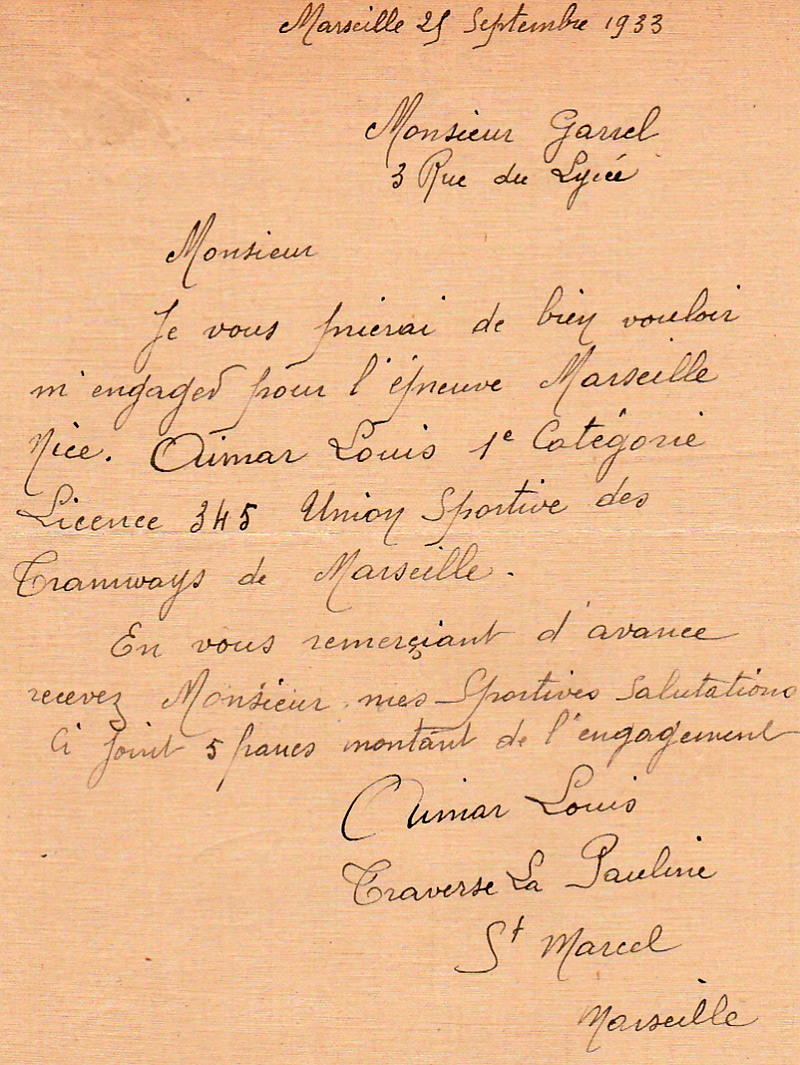 Marseille 25 Septembre 1933
Monsieur Garrel
3 Rue du Lycée
Monsieur
Je vous prierai de bien vouloir
m'engager pour l'épreuve Marseille
Nice. Aimar Louis 1e Catégorie
Licence 345 Union Sportive des
Tramways de Marseille.
En vous remerçiant d'avance
recevez Monsieur mes Sportives Salutations
Ci joint 5 francs montant de l'engagement
Aimar Louis
Traverse La Pauline
St Marcel
Marseille